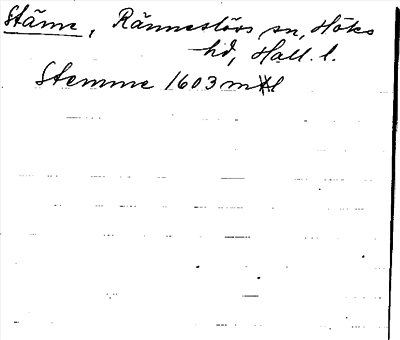 Stämne, Ränneslövs sn, Höks
hd, Hall. l.
Stemme 1603 mtl